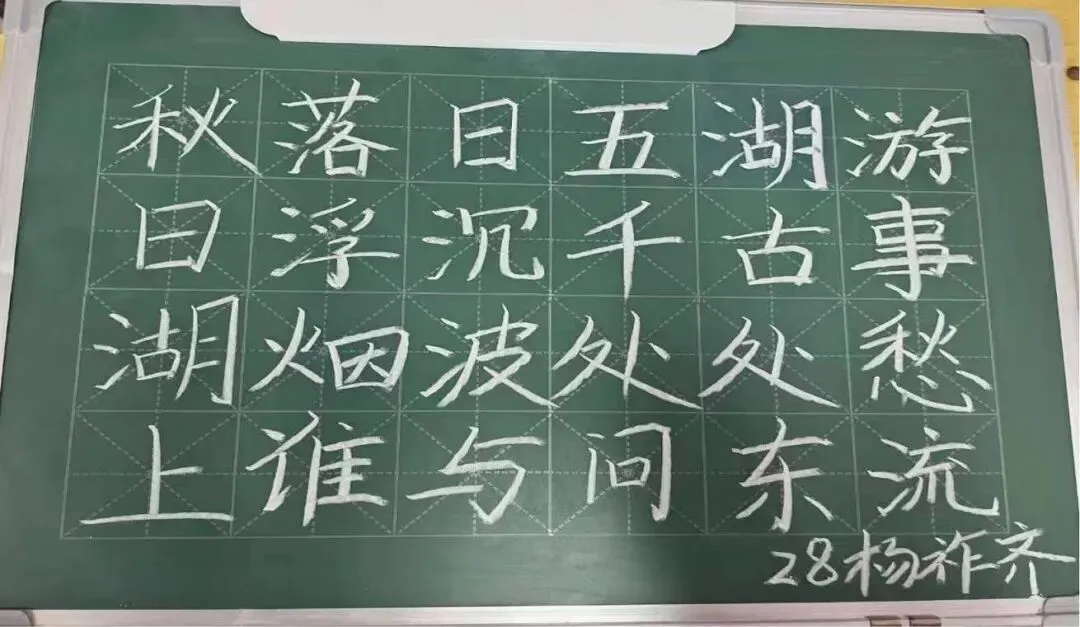 秋落日五湖游
日浮沉千古事
湖烟波处处愁
上谁与问东流
28杨祚齐